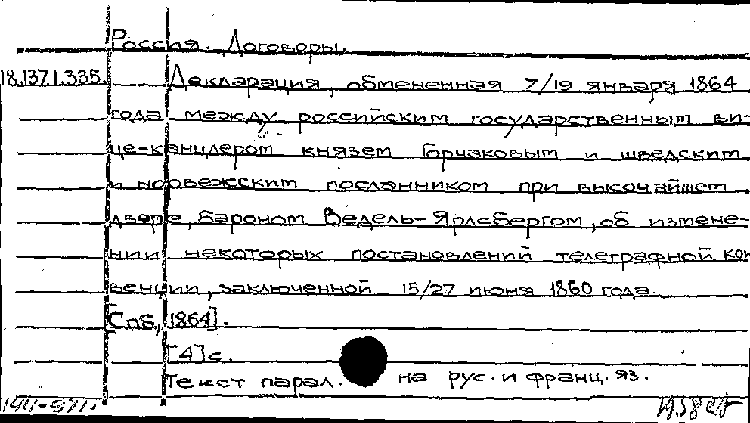 Россия. Договоры.
18.137.1.335. Декларация, обмененная 7/19 января 1864
года между российским государственным ви-
це-канцлером князем Горчаковым и шведским
и норвежским посланником при высочайшем
дворе, бароном Ведель-Ярлсбергом, об измене-
нии некоторых постановлений телеграфной кон
венции, заключенной 15/27 июня 1860 года.
[Спб., 1864].
[4] с.
Текст парал. на рус. и франц. яз.